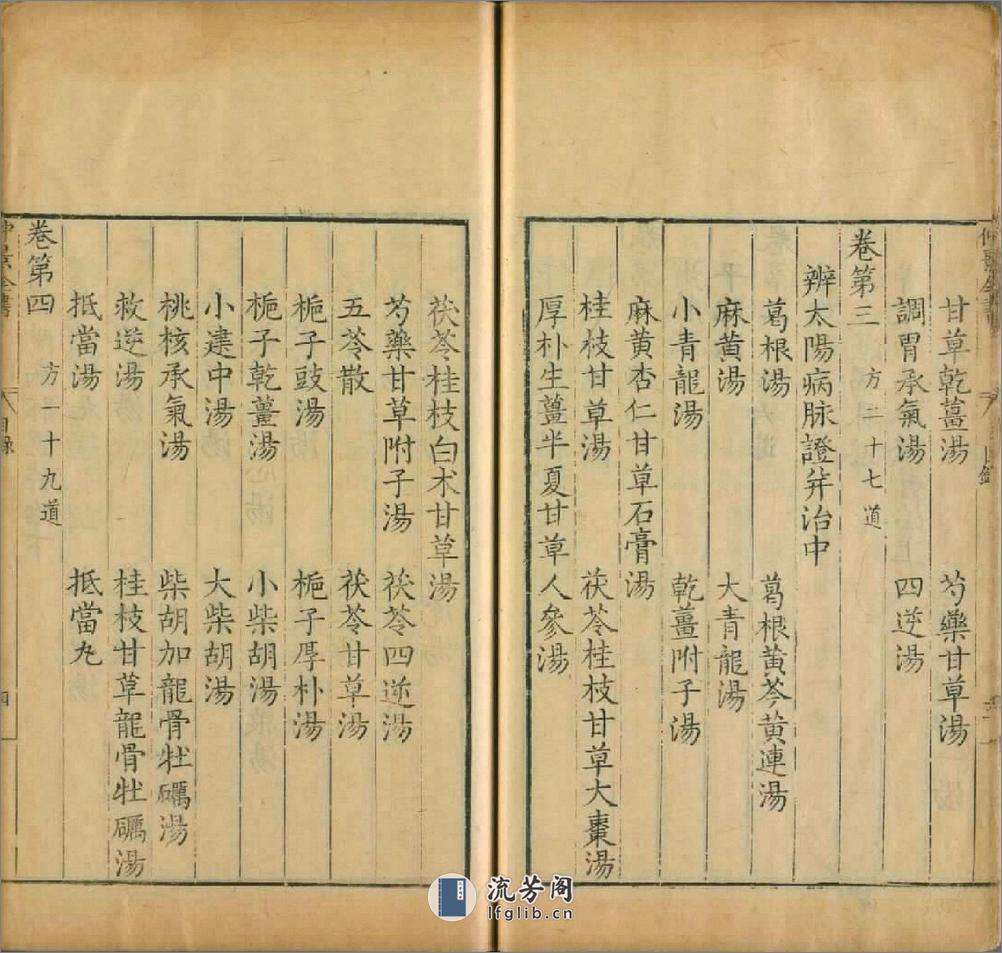 甘草乾薑湯 芍藥甘草湯
調胃承氣湯 四逆湯
卷第三 方二十七道
辨太陽病脉證并治中
葛根湯 葛根黃芩黃連湯
麻黃湯 大青龍湯
小青龍湯 乾薑附子湯
麻黃杏仁甘草石膏湯
桂枝甘草湯 茯苓桂枝甘草大棗湯
厚朴生薑半夏甘草人參湯
茯苓桂枝白朮甘草湯
芍藥甘草附子湯 茯苓四逆湯
五苓散 茯苓甘草湯
梔子豉湯 梔子厚朴湯
梔子乾薑湯 小柴胡湯
小建中湯 大柴胡湯
桃核承氣湯 柴胡加龍骨牡礪湯
救逆湯 桂枝甘草龍骨牡礪湯
抵當湯 抵當丸
卷第四 方一十九道
仲景全書 目錄 四
流芳阁
lfglib.cn